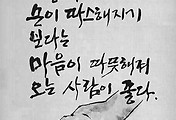 손이 따스해지기
보다는
마음이 따뜻해져
오는 사람이 좋다.